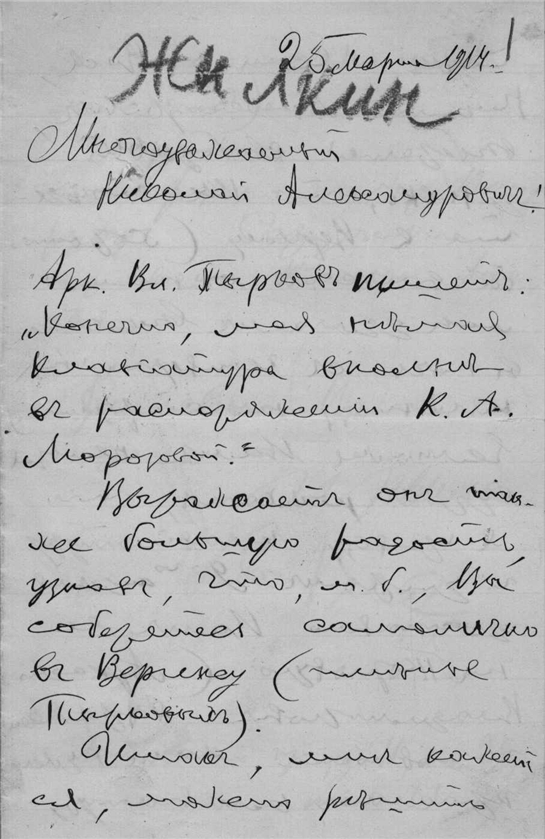 25 Марта 1914 г.!
Жилкин
Многоуважаемый
Николай Александрович!
Арк. Вл. Тырковъ пишетъ:
„Конечно, моя нѣмая
клавіатура вполнѣ
въ распоряженіи К. А.
Морозовой."
Выражаетъ онъ так-
же большую радость,
узнавъ, что, м. б., Вы
соберетесь самолично
въ Вергежу (имѣніе
Тырковыхъ).
Итакъ, мнѣ кажет
ся, можно рѣшить